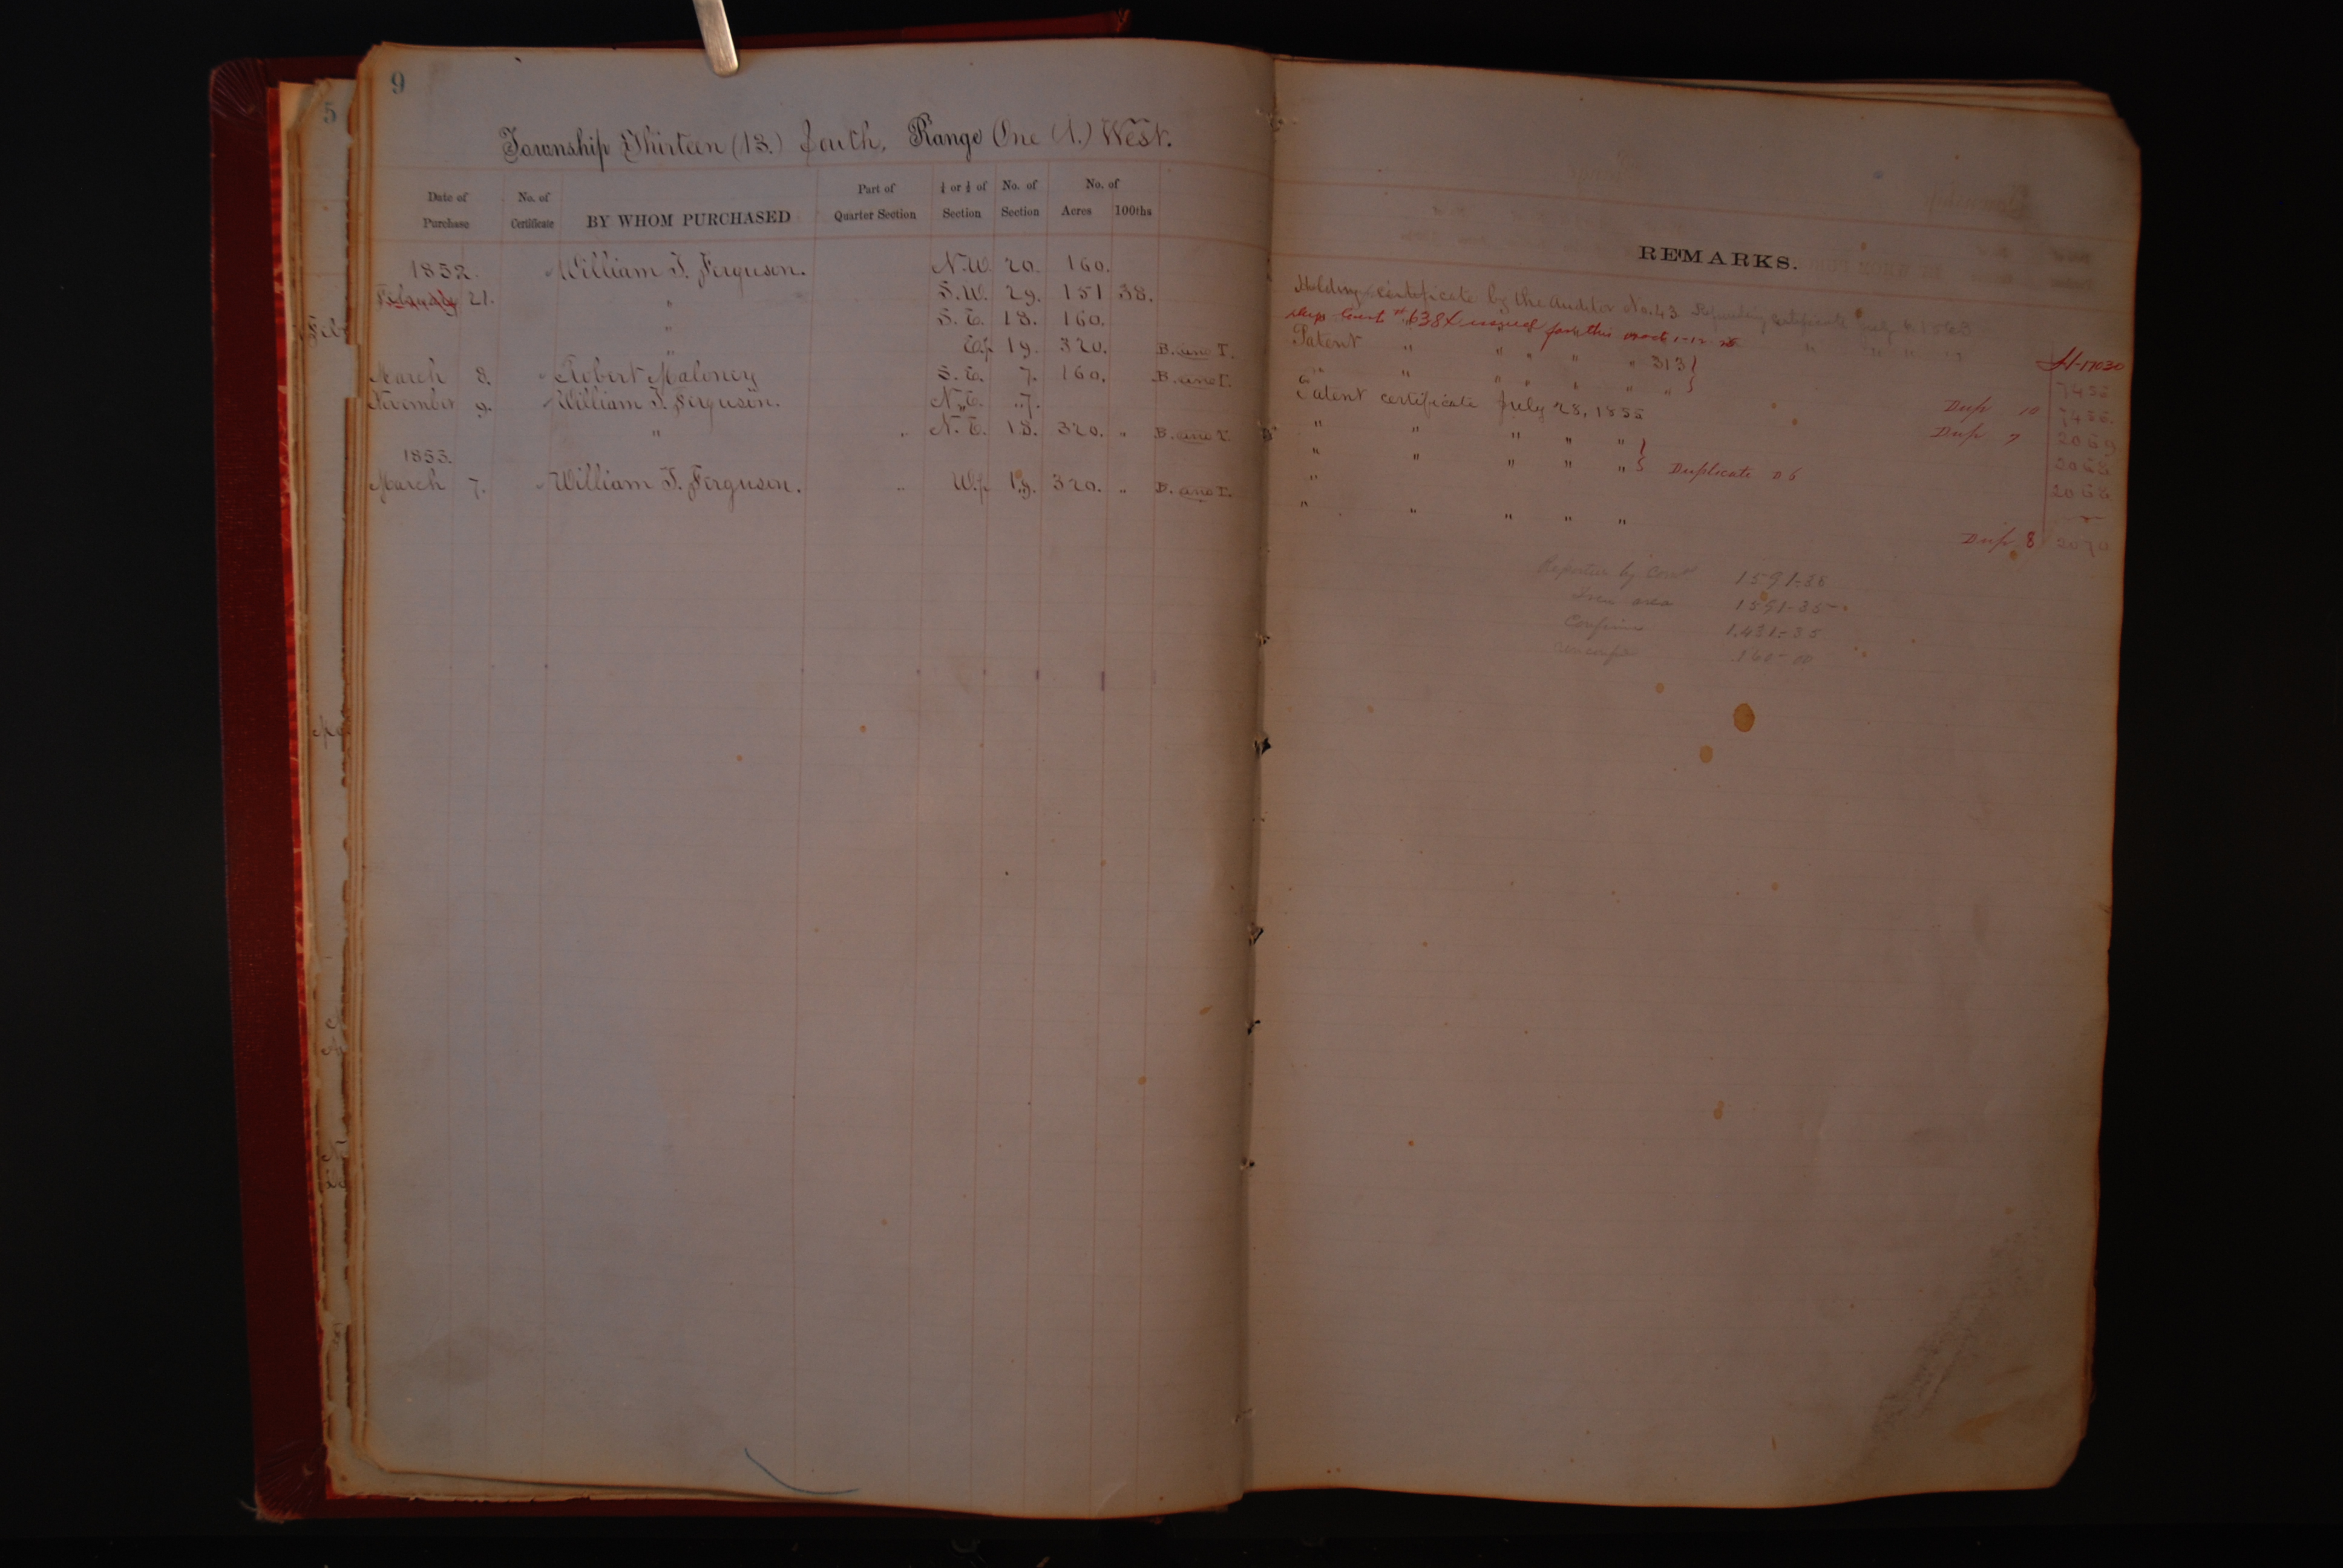 9
5
Township Thirteen (13.) South, Range One (1.) West.
Date of Purchase No. of Certificate BY WHOM PURCHASED Part of Quarter Section ¼ or ½ of Section No. of Section No. of Acres 100ths
REMARKS.
1852. William T. Ferguson. N.W. 20. 160.
February 21. " S.W. 29. 151 38.
" S.E. 18. 160.
" E.½ 19. 320. B. and I.
March 8. Robert Maloney S.E. 7. 160. B. and I.
November 9. William T. Ferguson. N.E. 7.
" N.E. 18. 320. " B. and I.
1853.
March 7. William T. Ferguson. " W.½ 19. 320. " B. and I.
Holding certificate by the Auditor No. 43 Refunding Certificate
issued for this 1-12-
Patent " " " " " 313 }
H-17030
" " " " " " " }
Patent certificate July 28, 1855 Dup 10
" " " " " } Dup 9 2069
" " " " " } Duplicate D 6 2068
" 2068
" " " " "
Dup. 8 2070
Reported by 1591-38
area 1591-35
1431-35
160-00